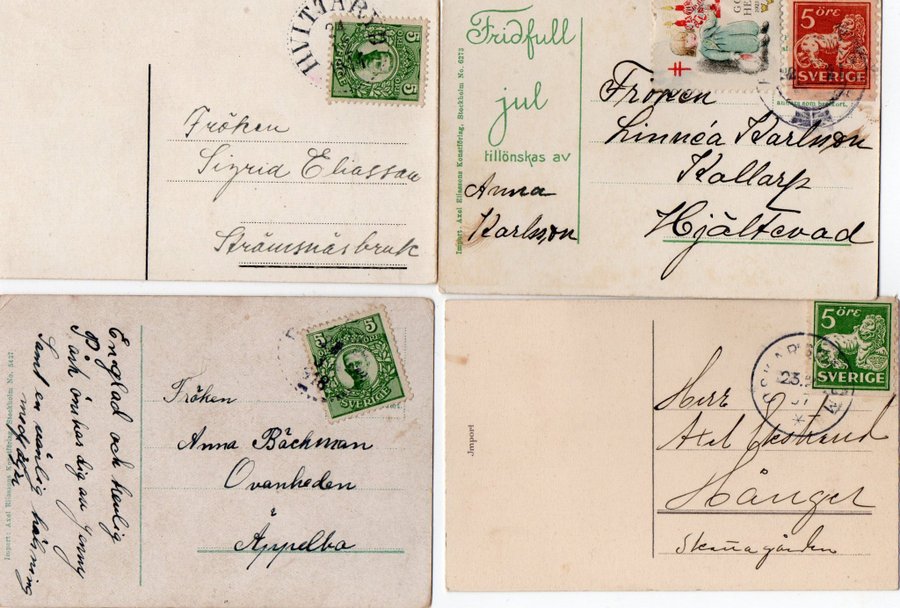 HVITTARYD
5
SVERIGE
5
Fröken
Sigrid Eliasson
Strömsnäsbruk
Fridfull
jul
tillönskas av
Anna
Karlsson
Import: Axel Eliassons Konstförlag, Stockholm No. 6273
GO
HE
5 ÖRE
SVERIGE
annars som brevkort.
Fröken
Linnéa Karlsson
Kallarp
Hjältevad
Import: Axel Eliassons Konstförlag, Stockholm No. 5427
Englad och henlig
på
Jul önskas dig av Jenny
Samt en vänlig hälsning
5
5
SVERIGE
18
Fröken
Anna Bäckman
Ovanheden
Äppelbo
Import
5 ÖRE
SVERIGE
23
Herr
Axel Ekstrand
Hånger